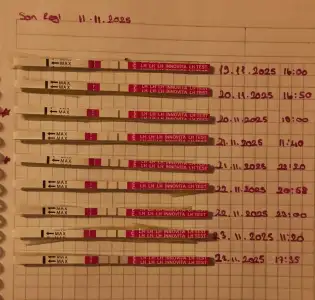 Son Regl 11.11.2025
← MAX MAX LH LH LH INNOVITA LH TEST 19.11.2025 16:00
← MAX MAX LH LH LH INNOVITA LH TEST 20.11.2025 16:50
← MAX MAX LH LH LH INNOVITA LH TEST 20.11.2025
← MAX MAX LH LH LH INNOVITA LH TEST 21.11.2025 11:40
← MAX MAX LH LH LH INNOVITA LH TEST 21.11.2025
← MAX MAX LH LH LH INNOVITA LH TEST 22.11.2025
← MAX MAX LH LH LH INNOVITA LH TEST 22.11.2025 23:00
← MAX MAX LH LH LH INNOVITA LH TEST 23.11.2025 11:20
← MAX MAX LH LH LH INNOVITA LH TEST 17:35